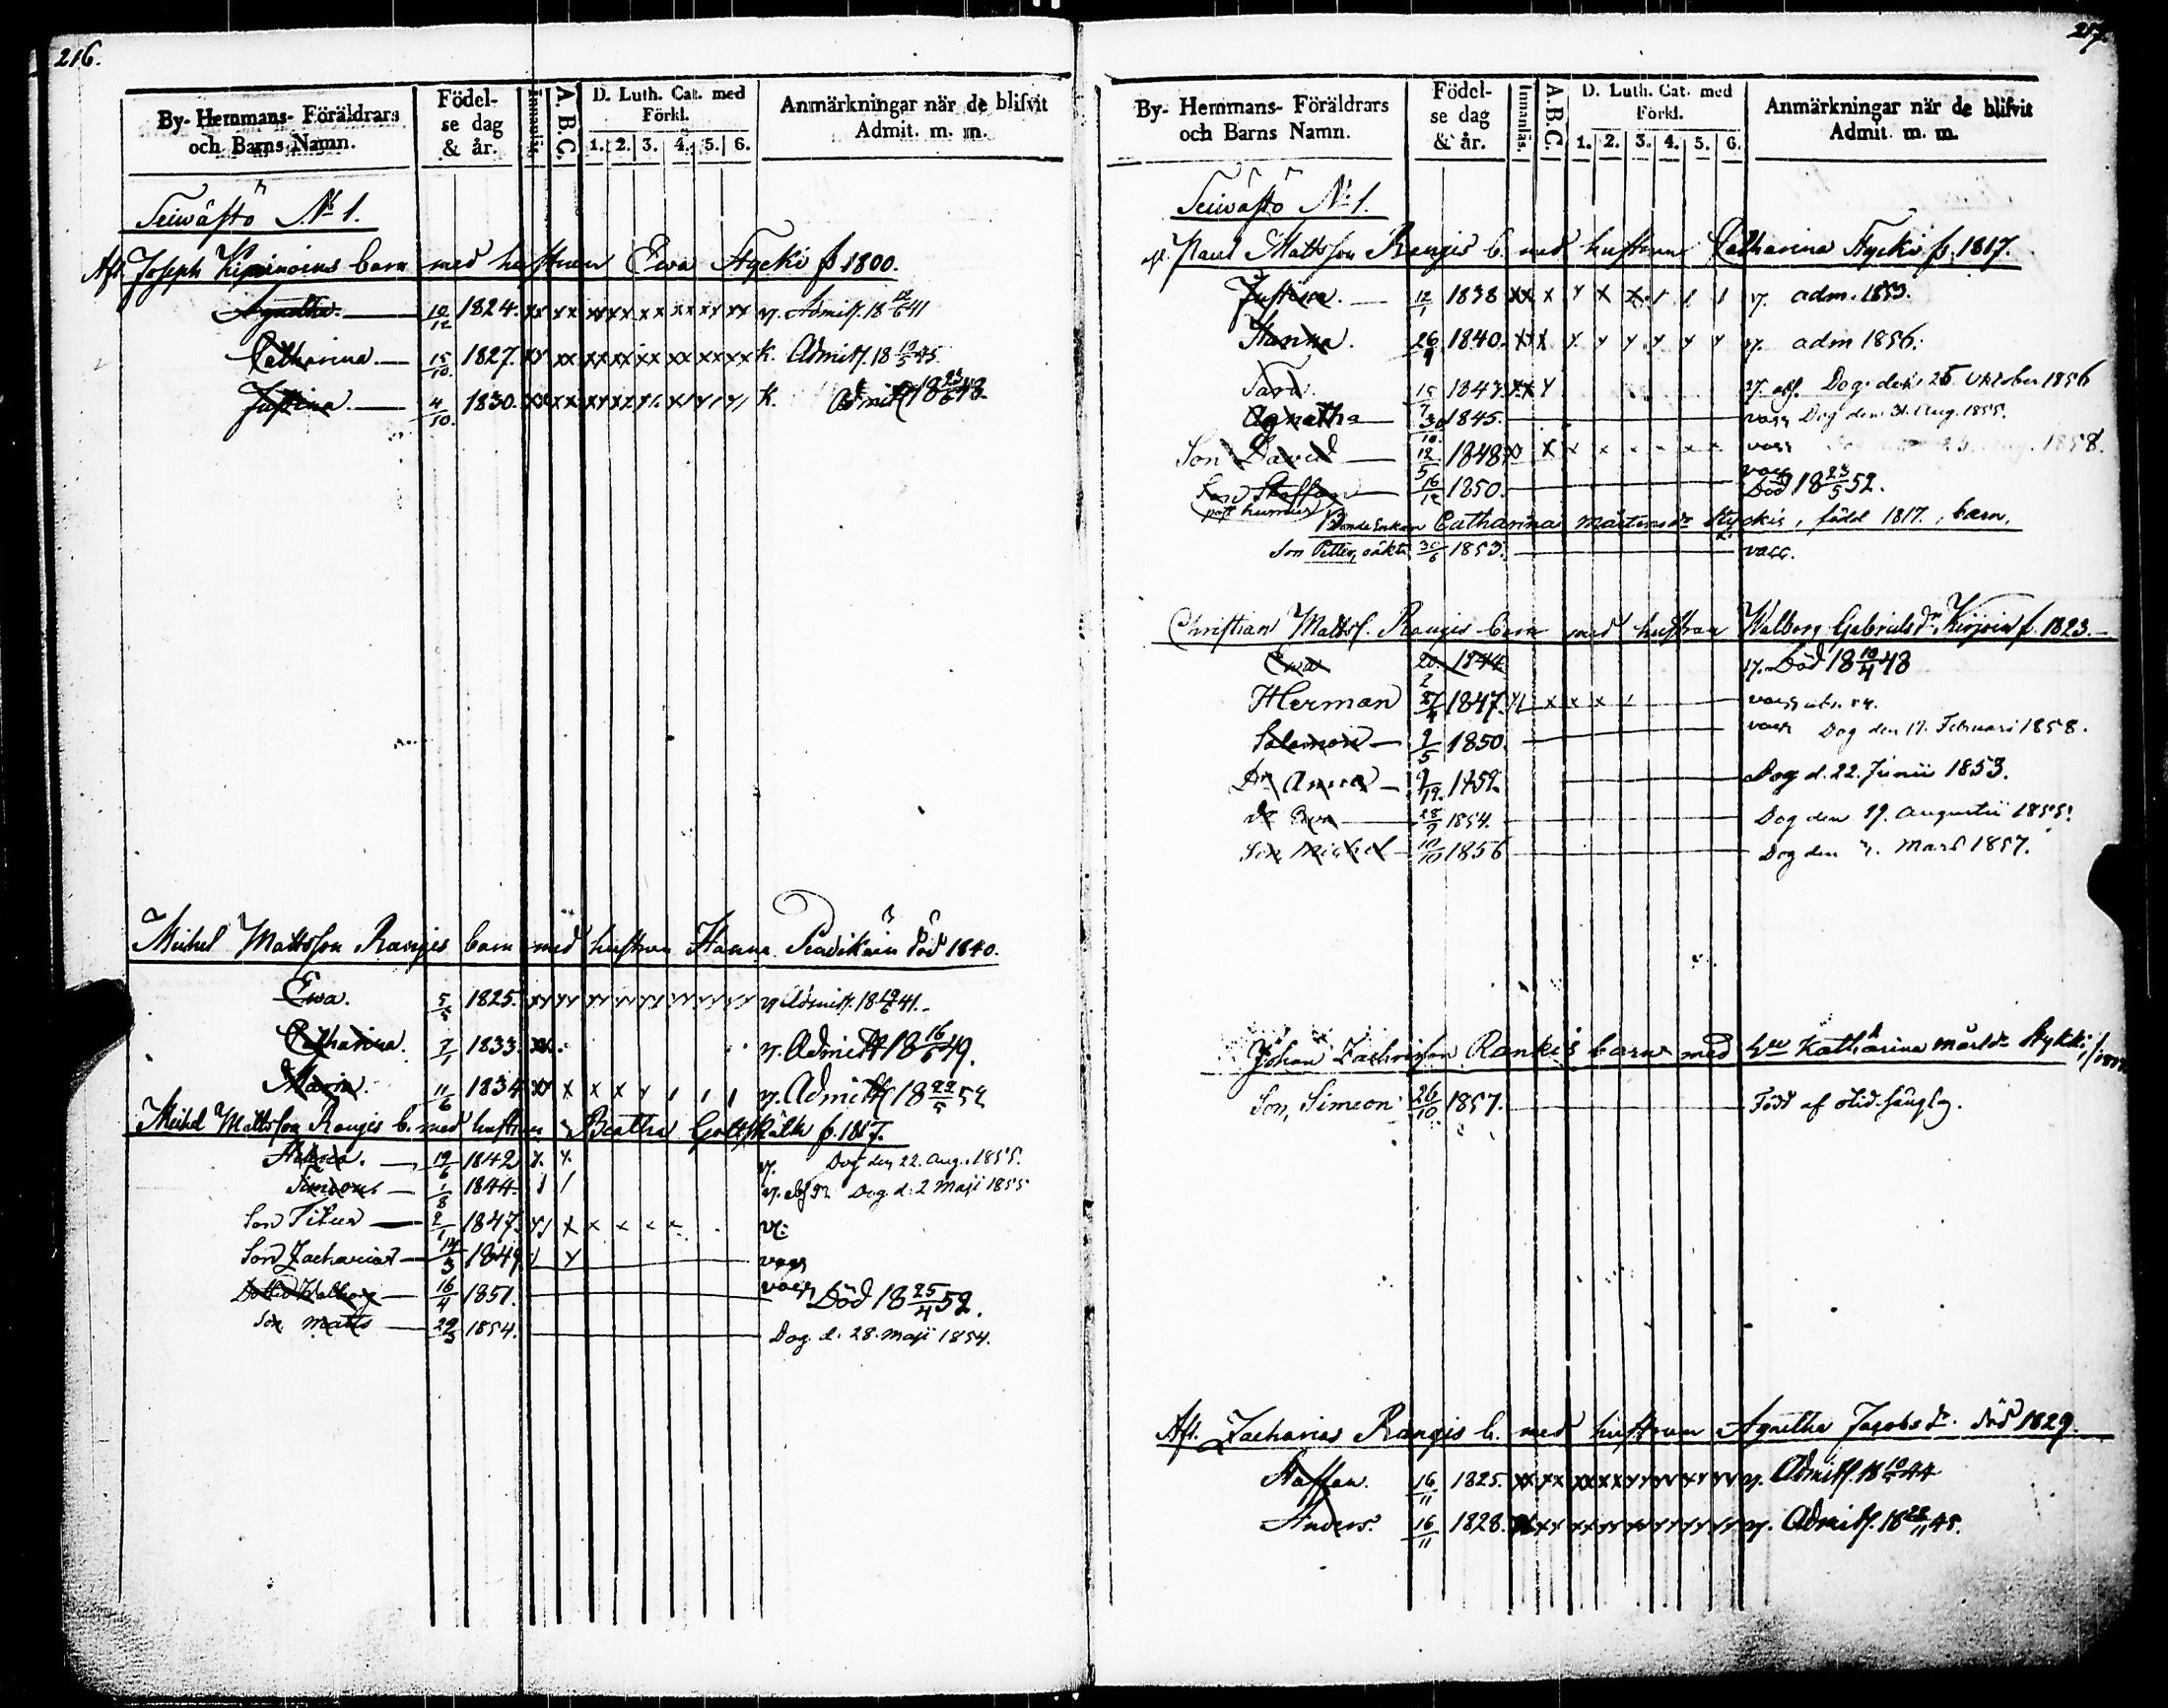 216.
By- Hemmans- Föräldrars och Barns Namn.
Födelse dag & år.
Innanläs.
A.B.C.
D. Luth. Cat. med Förkl.
1. 2. 3. 4. 5. 6.
Anmärkningar när de blifvit Admit. m. m.
Seiwästö No 1.
Aft. Joseph barn med hustrun Ewa Kycki f. 1800.
Agnetha. 10/12 1824. Admitt.
Catharina 15/10 1827. k. Admitt.
Justina 4/10 1830. k. Admitt
Michel Mattsson Rangis barn med hustrun Hanna död 1840.
Ewa. 5/5 1825. Admitt. 41.
Catharina. 7/1 1833. Admitt 18 16/6 49.
Maria. 11/6 1834 Admitt 18 52
Michel Mattsson Rangis b. med hustrun Beatha f. 1817.
Helena. 19/6 1842 Dog den 22. Aug. 1855.
Simeon 1/8 1844. Dog d. 2 Maji 1855
Son Titus 2/1 1847.
Son Zacharias 14/3 1849 vacc
Walborg 16/4 1851. vacc Död 18 25/4 52.
Son Matts 29/3 1854. Dog d. 28. Maji 1854.
217.
By- Hemmans- Föräldrars och Barns Namn.
Födelse dag & år.
Innanläs.
A.B.C.
D. Luth. Cat. med Förkl.
1. 2. 3. 4. 5. 6.
Anmärkningar när de blifvit Admit. m. m.
Seiwästö No 1.
aft. Paul Mattsson Rangis b. med hustrun Catharina Kycki f. 1817.
Justina. 12/1 1838 adm. 1853.
Hanna. 26/9 1840. adm 1856.
Sara. 15/7 1843. Dog den 25. Oktober 1856
Agnetha 30/10 1845. vacc Dog den 31. Aug. 1855.
Son David 12/5 1848 vacc 1858.
Son Staffan 16/12 1850. vacc Död 18 23/5 52.
post humus
Bonde Enkan Catharina Mårtensdr Kyckis, född 1817., barn,
Son Petter, oäkta 30/6 1853. vacc.
Christian Mattss. Rangis barn med hustrun Walborg Gabrielsdr f. 1823.
Ewa 20/2 1844 Död 18 19/4 48
Herman 27/4 1847. vacc
Salomon 9/5 1850. vacc Dog den 17. Februari 1858.
Dr Anna 1852. Dog d. 22. Junii 1853.
dr Ewa 28/9 1854. Dog den 19. Augustii 1855.
Son Michel 10/10 1856 Dog den Mars 1857.
Johan Zachrisson Rankis barn med Katharina Mårtdr Kykki,
Son, Simeon 26/10 1857. Född af
Aft. Zacharias Rangis b. med hustrun Agnetha Jacobsdr. död 1829.
Staffan. 16/11 1825. Admitt. 44
Anders. 16/11 1828. Admitt. 45.